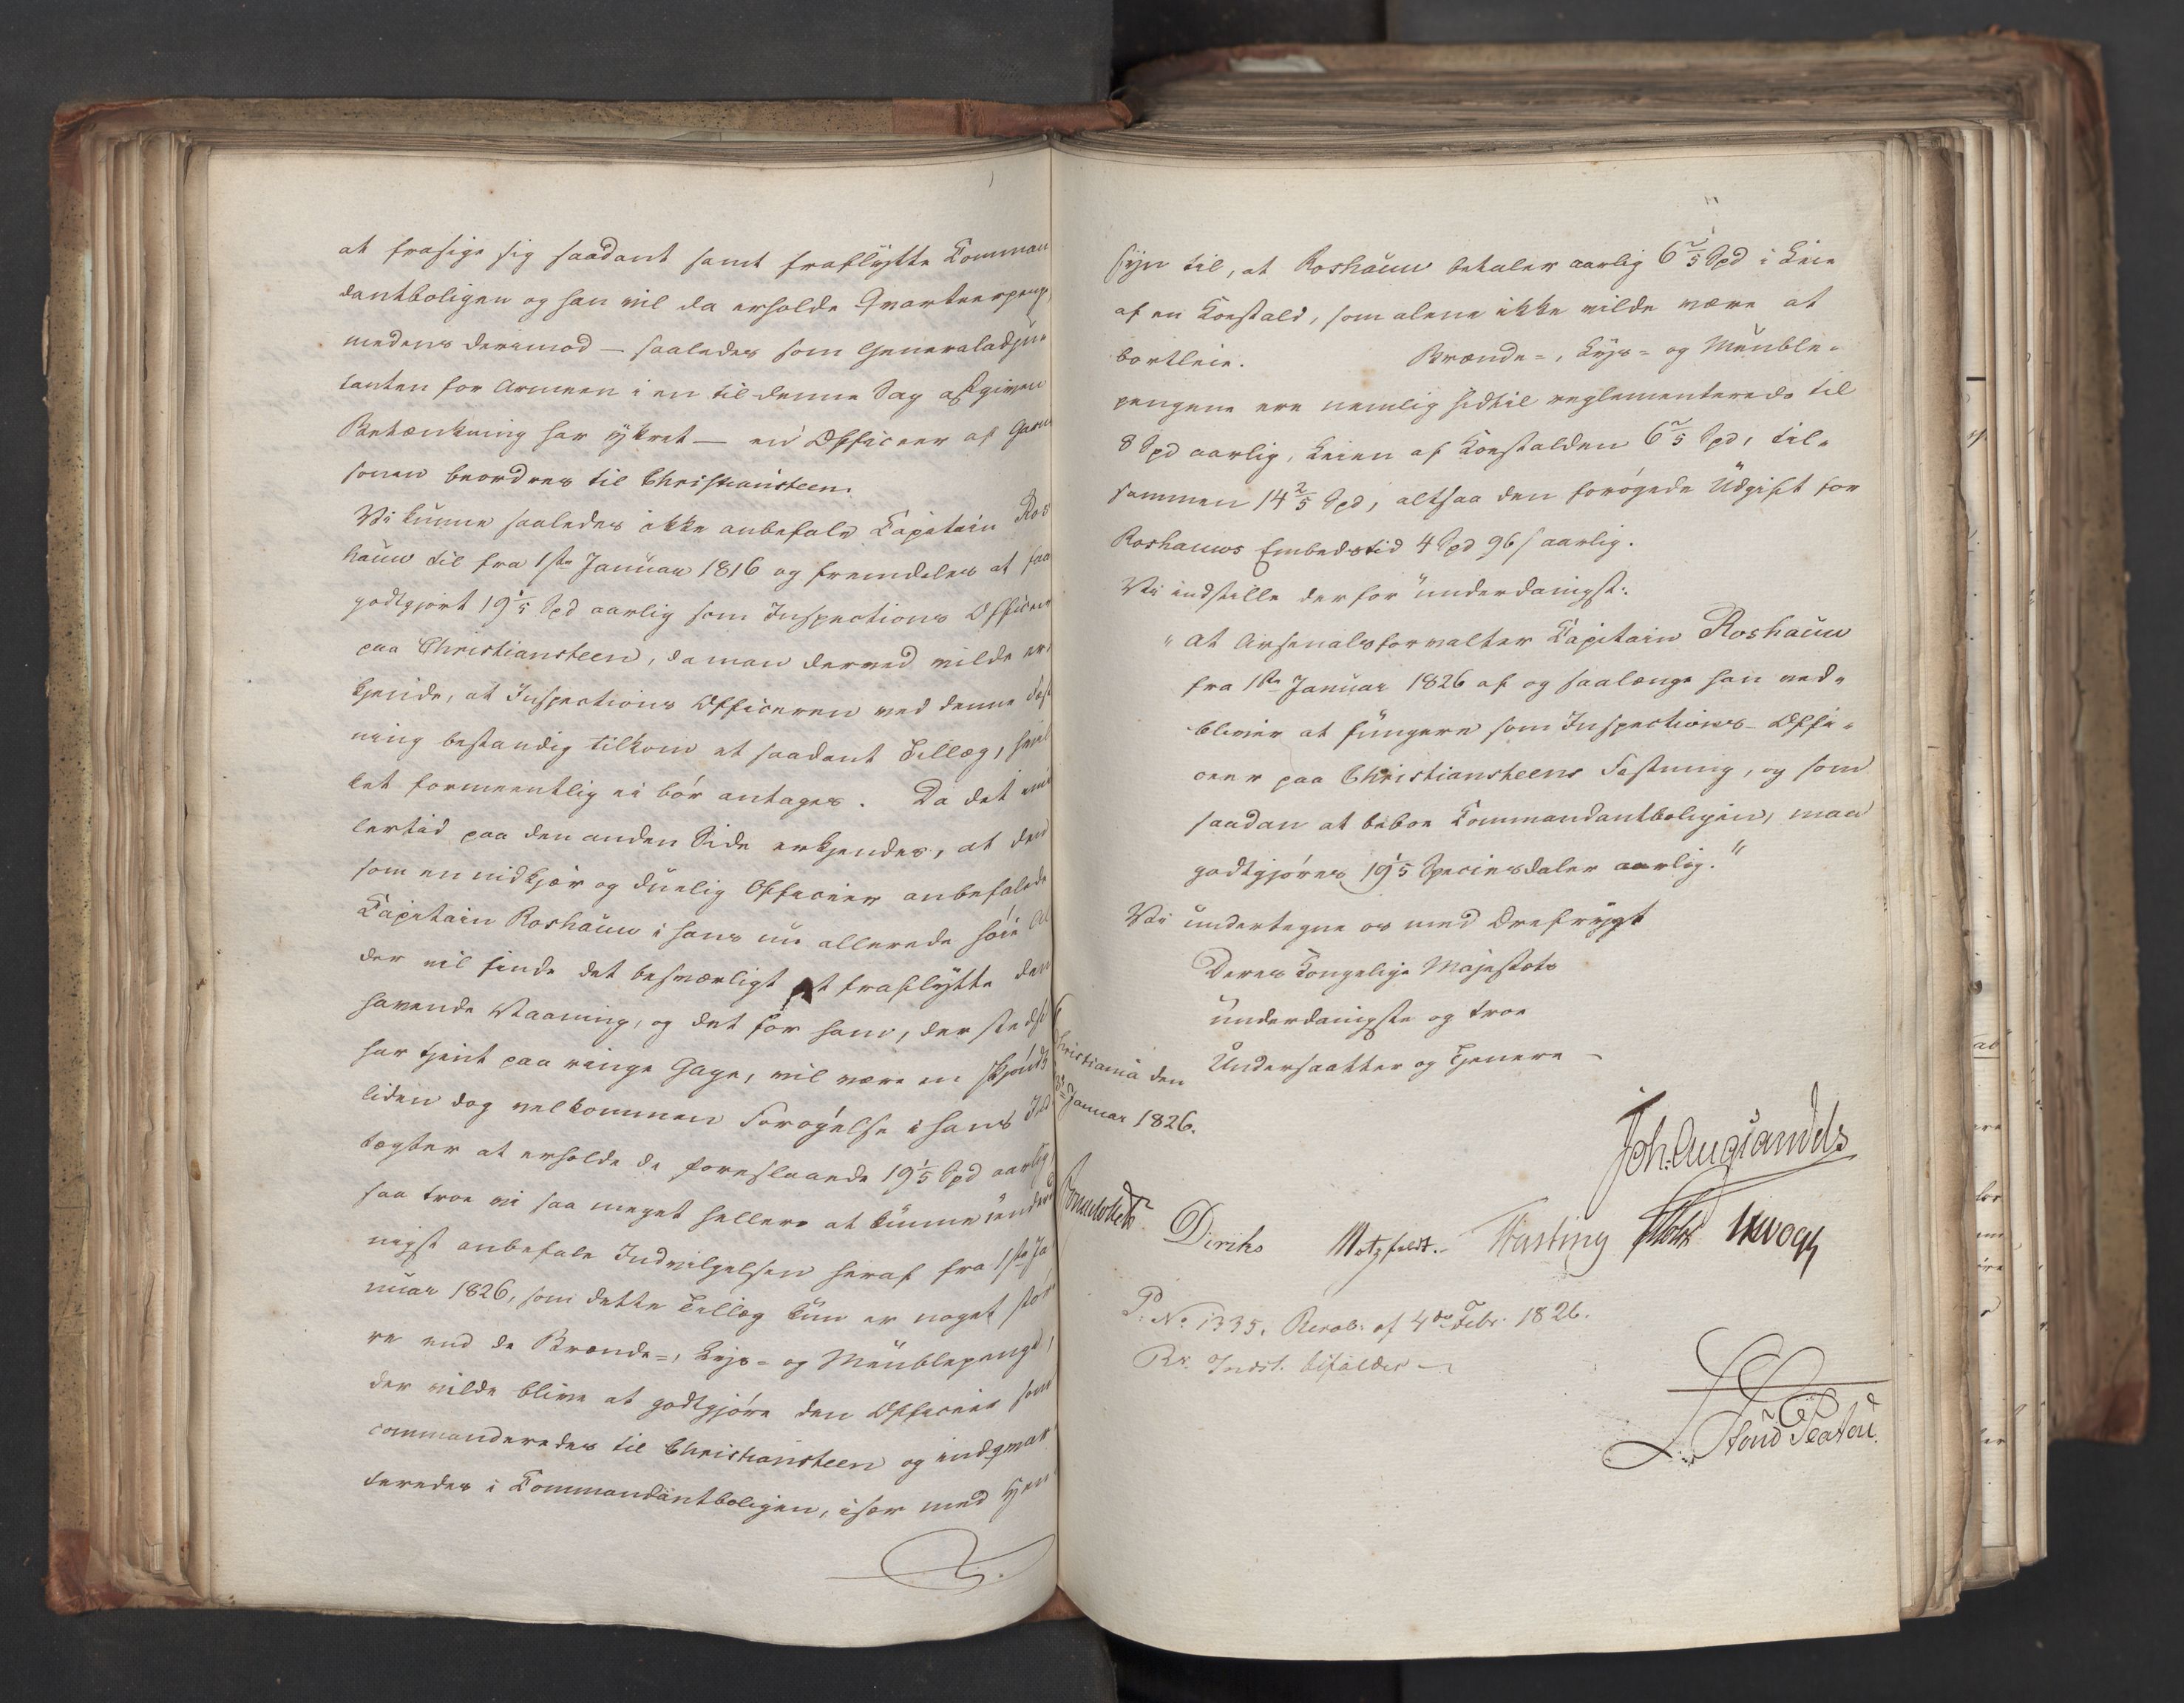 at frasige sig saadant samt fraflytte Comman
dantboligen og han vil da erholde Qvarteerpenge
medens derimod — saaledes som Generaladju
tanten for Armeen i en til denne Sag afgiven
Betænkning har yttret — en Officeer af Garni
sonen beordres til Christiansteen.
Vi kunne saaledes ikke anbefale Capitain Ros
hauw til fra 1ste Januar 1816 og fremdeles at faa
godtgjort 19 1/5 Spd aarlig som Inspections Officeer
paa Christiansteen, da man derved vilde er
kjende, at Inspections Officeren ved denne Fæst
ning bestandig tilkom et saadant Tillæg, hvil
ket formeentlig ei bør antages. Da det imid
lertid paa den anden Side erkjendes, at den
som en nidkjær og duelig Officeer anbefalede
Capitain Roshauw i hans nu allerede høie Al
der vil finde det besværligt at fraflytte den
havende Vaaning, og det for ham, der stedse
har tjent paa ringe Gage, vil være en skjøndt
liden dog velkommen Forøgelse i hans Ind
tægter at erholde de foreslaaede 19 1/5 Spd aarlig,
saa troe vi saa meget hellere at kunne underd
nigst anbefale Indvilgelsen heraf fra 1ste Ja
nuar 1826, som dette Tillæg kun er noget stør
re end de Brænde-, Lys- og Meublepenge,
der vilde blive at godtgjøre den Officeer som
commanderedes til Christiansteen og indqvar
teredes i Commandantboligen, især med Hen
syn til, at Roshauw betaler aarlig 6 2/5 Spd i Leie
af en Koestald, som alene ikke vilde være at
bortleie. Brænde-, Lys- og Meuble-
pengene ere nemlig hidtil reglementerede til
8 Spd aarlig, Leien af Koestalden 6 2/5 Spd, til-
sammen 14 2/5 Spd, altsaa den forøgede Udgift for
Roshauws Embedstid 4 Spd 96 s aarlig.
Vi indstille derfor underdanigst:
"at Arsenalsforvalter Capitain Roshauw
fra 1ste Januar 1826 af og saalænge han ved-
bliver at fungere som Inspections-Offi-
ceer paa Christiansteens Fæstning, og som
saadan at beboe Commandantboligen, maa
godtgjøres 19 1/5 Speciesdaler aarlig."
Vi undertegne os med Ærefrygt
Deres Kongelige Majestæts
underdanigste og troe
Undersaatter og Tjenere —
Christiania den
Januar 1826.
Joh. Aug. Sandels
Sommerhielm Diriks Motzfeldt. Fasting Holst Krogh
P. No 1335. Resol. af 4de Febr. 1826.
Rs. Indst. bifaldes